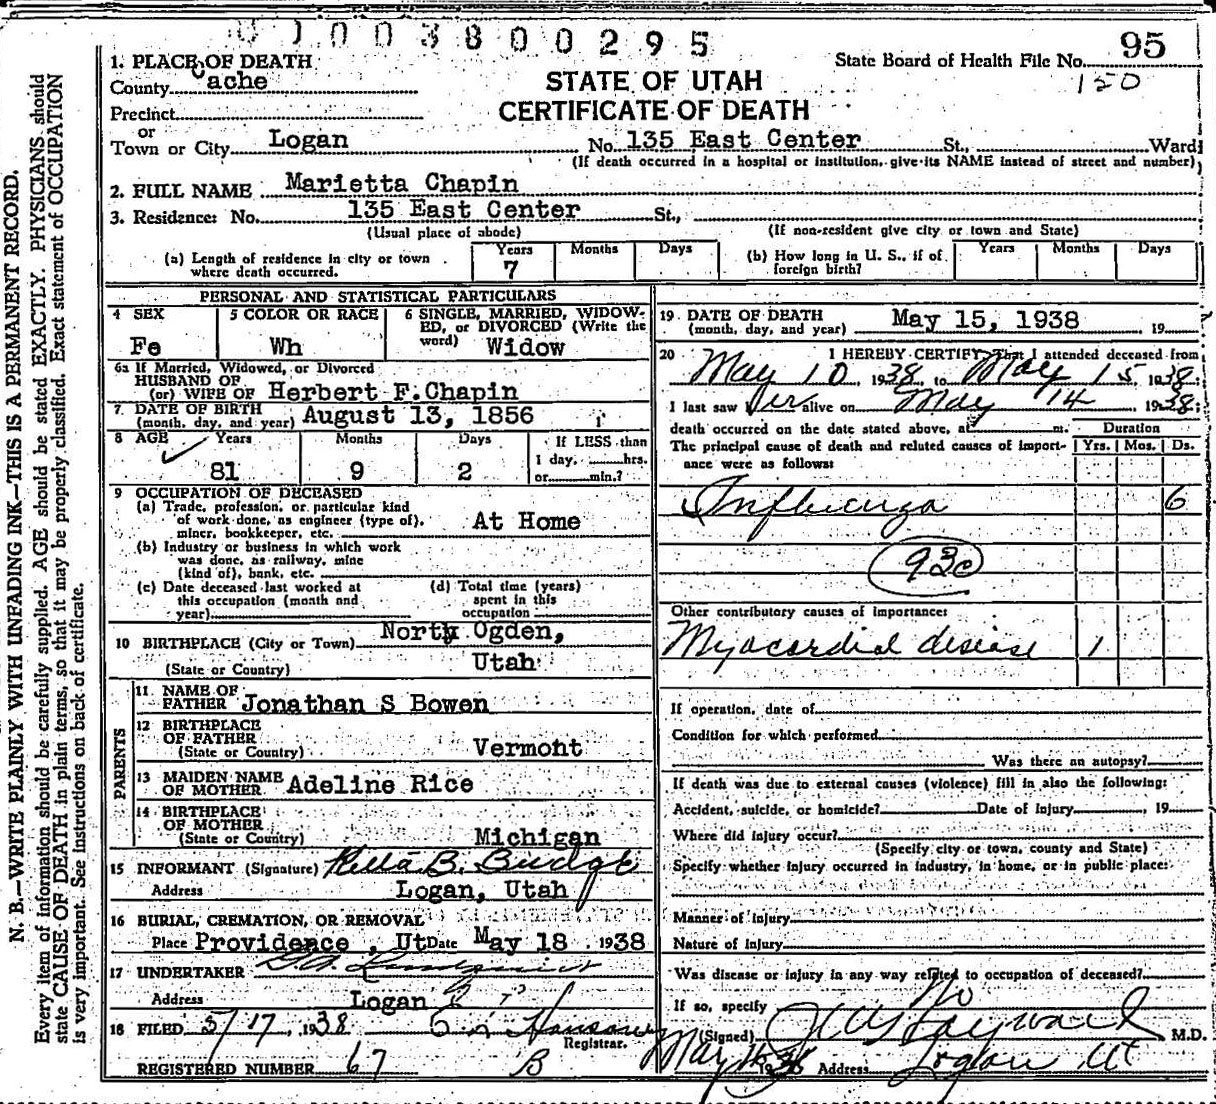 0100380 0295
State Board of Health File No. 95
150
STATE OF UTAH
CERTIFICATE OF DEATH
1. PLACE OF DEATH
County Cache
Precinct
or
Town or City Logan No. 135 East Center St., Ward
(If death occurred in a hospital or institution, give its NAME instead of street and number)
2. FULL NAME Marietta Chapin
3. Residence: No. 135 East Center St.,
(Usual place of abode) (If non-resident give city or town and State)
(a) Length of residence in city or town where death occurred. Years 7 Months Days
(b) How long in U. S., if of foreign birth? Years Months Days
PERSONAL AND STATISTICAL PARTICULARS
4 SEX Fe
5 COLOR OR RACE Wh
6 SINGLE, MARRIED, WIDOWED, or DIVORCED (Write the word) Widow
6a If Married, Widowed, or Divorced
HUSBAND OF
(or) WIFE OF Herbert F. Chapin
7. DATE OF BIRTH
(month, day, and year) August 13, 1856
8 AGE Years 81 Months 9 Days 2
If LESS than
1 day, hrs.
or min.?
9 OCCUPATION OF DECEASED
(a) Trade, profession, or particular kind
of work done, as engineer (type of),
miner, bookkeeper, etc. At Home
(b) Industry or business in which work
was done, as railway, mine
(kind of), bank, etc.
(c) Date deceased last worked at
this occupation (month and
year)
(d) Total time (years)
spent in this
occupation
10 BIRTHPLACE (City or Town) North Ogden,
(State or Country) Utah
PARENTS
11 NAME OF
FATHER Jonathan S Bowen
12 BIRTHPLACE
OF FATHER
(State or Country) Vermont
13 MAIDEN NAME
OF MOTHER Adeline Rice
14 BIRTHPLACE
OF MOTHER
(State or Country) Michigan
15 INFORMANT (Signature) B. Budge
Address Logan, Utah
16 BURIAL, CREMATION, OR REMOVAL
Place Providence, Ut Date May 18, 1938
17 UNDERTAKER
Address Logan
18 FILED 5/17, 1938
Registrar.
REGISTERED NUMBER 67 B
19 DATE OF DEATH
(month, day, and year) May 15, 1938 19
20 I HEREBY CERTIFY, That I attended deceased from
May 10 1938 to May 15 1938;
I last saw her alive on May 14 1938;
death occurred on the date stated above, at m.
The principal cause of death and related causes of importance were as follows:
Duration
Yrs. Mos. Ds.
Influenza 6
93c
Other contributory causes of importance:
Myocardial disease 1
If operation, date of
Condition for which performed
Was there an autopsy?
If death was due to external causes (violence) fill in also the following:
Accident, suicide, or homicide? Date of Injury 19
Where did injury occur?
(Specify city or town, county and State)
Specify whether injury occurred in industry, in home, or in public place:
Manner of injury
Nature of Injury
Was disease or injury in any way related to occupation of deceased?
No
If so, specify
(Signed) Hayward M.D.
May 16 1938 Address Logan Ut
N. B.—WRITE PLAINLY WITH UNFADING INK—THIS IS A PERMANENT RECORD.
Every item of information should be carefully supplied. AGE should be stated EXACTLY. PHYSICIANS should
state CAUSE OF DEATH in plain terms, so that it may be properly classified. Exact statement of OCCUPATION
is very important. See instructions on back of certificate.